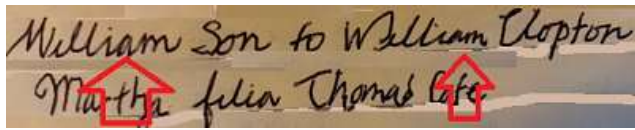 William Son to William Clopton
Martha filia Thomas Cote